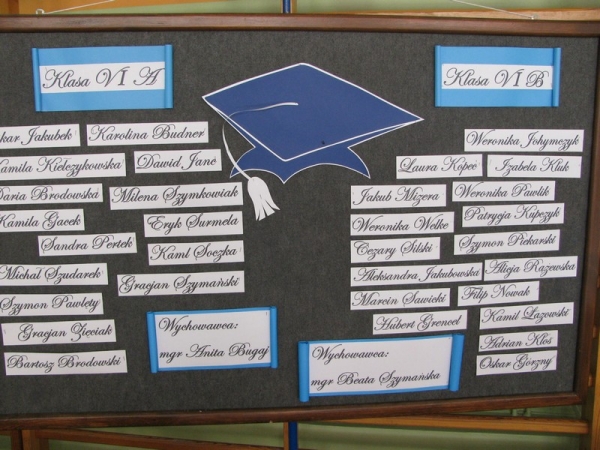 Klasa VI A
Jakubek
Karolina Budner
Kamila Kielczykowska
Dawid Janc
Daria Brodowska
Milena Szymkowiak
Kamila Gacek
Eryk Surmela
Sandra Pertek
Kamil Soczka
Michał Szudarek
Gracjan Szymański
Szymon Pawlety
Gracjan Zięciak
Bartosz Brodowski
Wychowawca:
mgr Anita Bugaj
Klasa VI B
Weronika Johymczyk
Laura Kopeć
Izabela Kluk
Jakub Mizera
Weronika Pawlik
Weronika Welke
Patrycja Kupczyk
Cezary Silski
Szymon Piekarski
Aleksandra Jakubowska
Alicja Rażewska
Marcin Sawicki
Filip Nowak
Hubert Grencel
Kamil Lazowski
Adrian Kłos
Oskar Gorzny
Wychowawca:
mgr Beata Szymańska